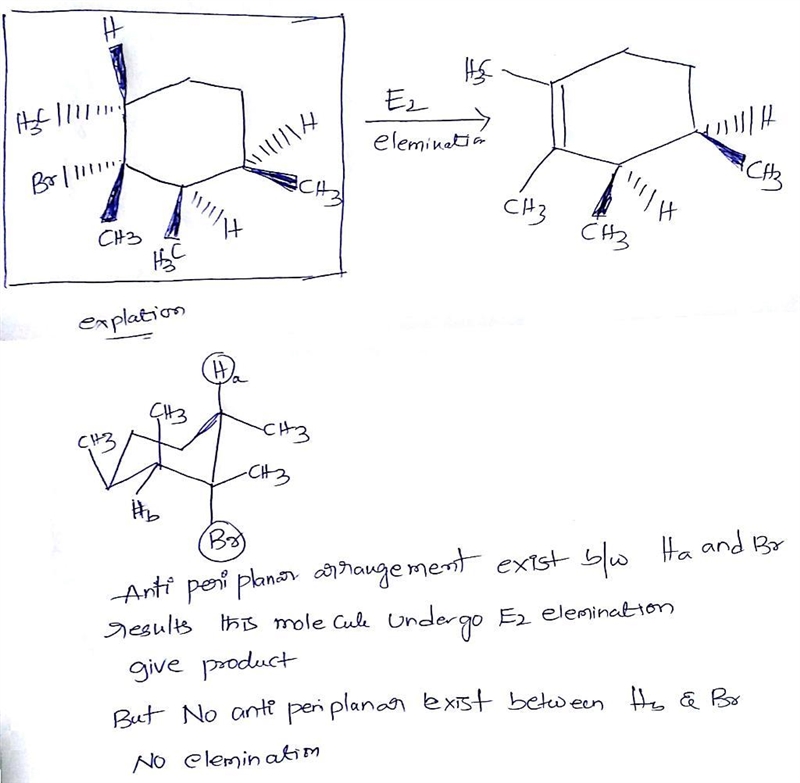 H
H₃C
Br
CH3
H₃C
H
H
CH3
E₂
elemination
H₃C
CH3
CH3
H
H
CH3
explation
Ha
CH3
CH3
CH3
CH3
Hb
Br
Anti peri planar arrangement exist b/w Ha and Br
results this mole cule undergo E₂ elemination
give product
But No anti peri planar exist between Hb & Br
No elemination